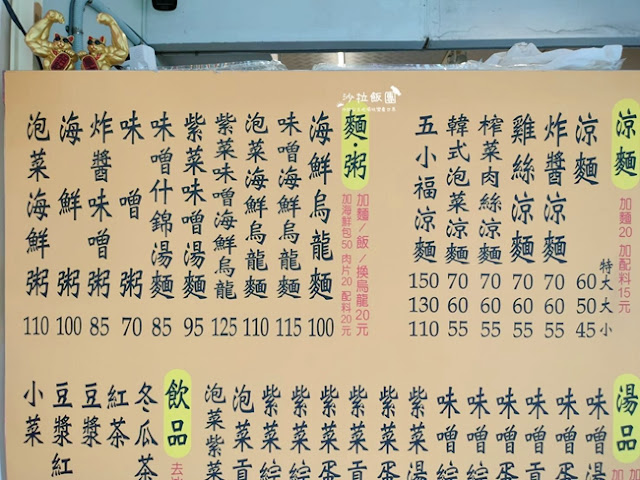 沙拉飯團
涼麵
加麵20 加配料15元
特大 大 小
涼麵 60 50 45
炸醬涼麵 70 60 55
雞絲涼麵 70 60 55
榨菜肉絲涼麵 70 60 55
韓式泡菜涼麵 70 60 55
五小福涼麵 150 130 110
麵・粥
加麵/飯/換烏龍20元
加海鮮包50 肉片20 配料20元
海鮮烏龍麵 100
味噌海鮮烏龍麵 115
泡菜海鮮烏龍麵 110
紫菜味噌海鮮烏龍 125
紫菜味噌湯麵 95
味噌什錦湯麵 85
味噌粥 70
炸醬味噌粥 85
海鮮粥 100
泡菜海鮮粥 110
湯品
加
加
味噌
味噌
味噌蛋
味噌貢
味噌綜
味噌湯
紫菜湯
紫菜蛋
紫菜
紫菜蛋
紫菜貢
紫菜綜
泡菜貢
泡菜紫菜
飲品
去
冬瓜茶
紅茶
豆漿
豆漿紅
小菜